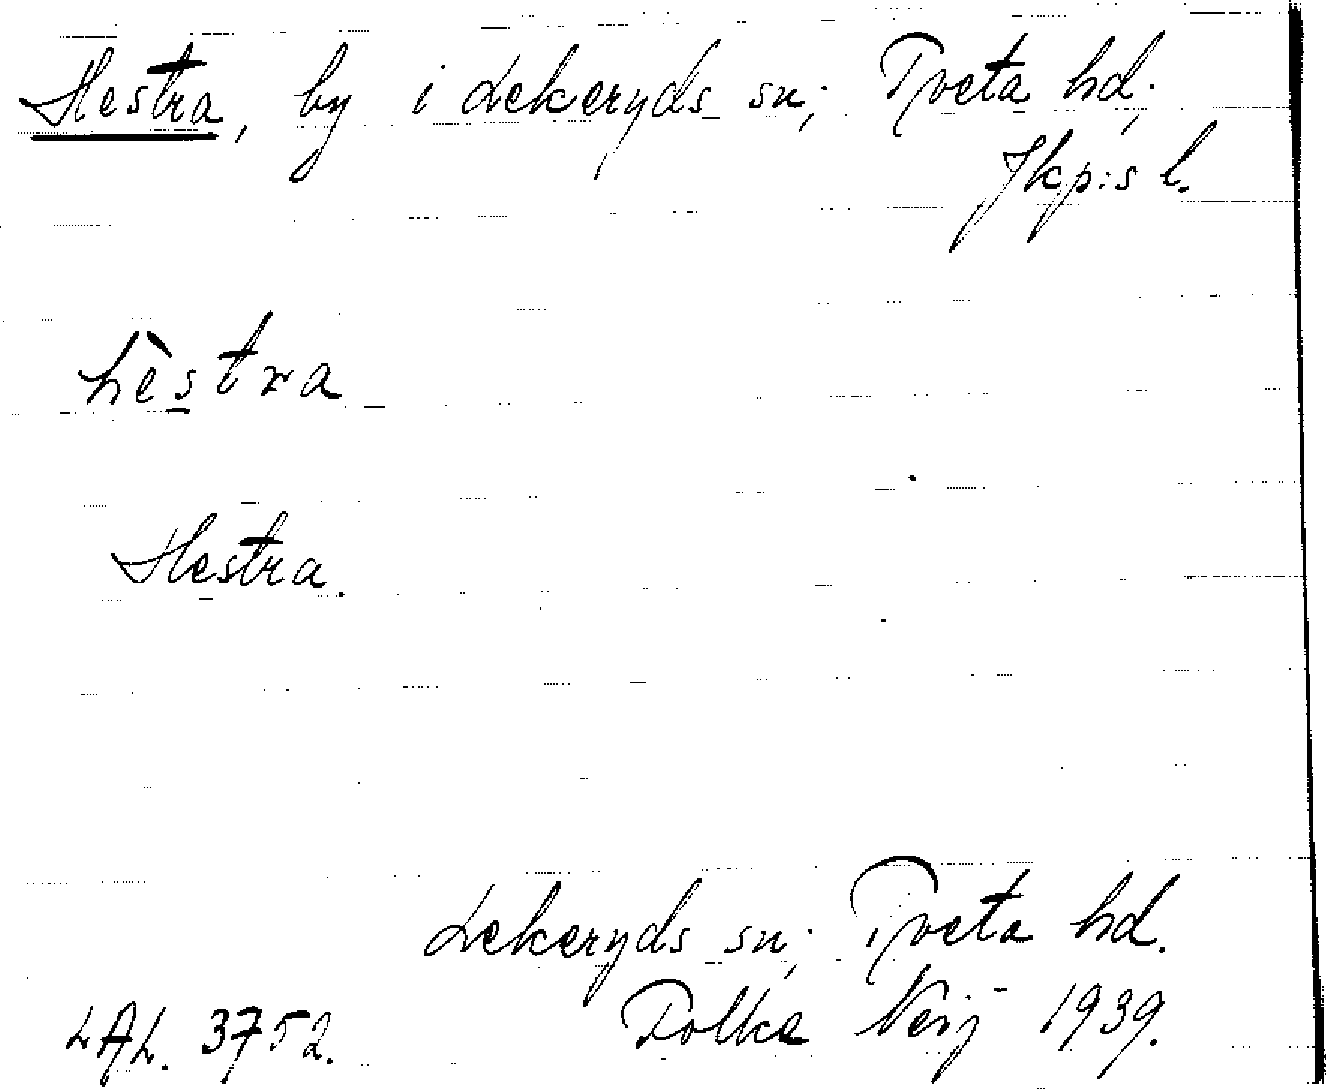 Hestra, by i Lekeryds sn; Tveta hd;
Jkp:s l.
hèstra
Hestra.
Lekeryds sn; Tveta hd.
1939.
LAL. 3752.